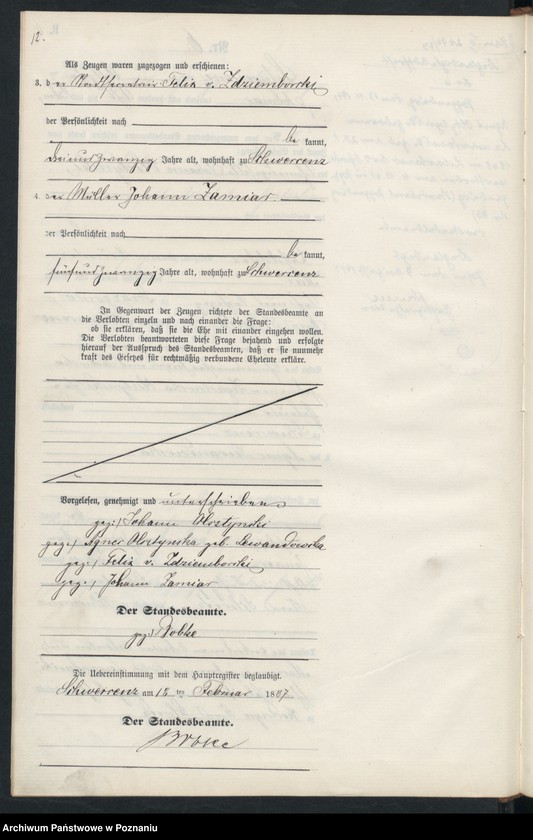 12.
Als Zeugen waren zugezogen und erschienen:
3. der Stadtsecretair Felix v. Zdziemborski
der Persönlichkeit nach
bekannt,
dreiundzwanzig Jahre alt, wohnhaft zu Schwersenz
4. der Müller Johann Zamiar
der Persönlichkeit nach
bekannt,
fünfundzwanzig Jahre alt, wohnhaft zu Schwersenz
In Gegenwart der Zeugen richtete der Standesbeamte an
die Verlobten einzeln und nach einander die Frage:
ob sie erklären, daß sie die Ehe mit einander eingehen wollen.
Die Verlobten beantworteten diese Frage bejahend und erfolgte
hierauf der Ausspruch des Standesbeamten, daß er sie nunmehr
kraft des Gesetzes für rechtmäßig verbundene Eheleute erkläre.
Vorgelesen, genehmigt und unterschrieben
gez.) Johann Olsztynski
gez.) Agnes Olsztynska geb. Lewandowska
gez.) Felix v. Zdziemborski
gez.) Johann Zamiar
Der Standesbeamte.
gez.) Bobke
Die Uebereinstimmung mit dem Hauptregister beglaubigt.
Schwersenz am 15 ten Februar 1887
Der Standesbeamte.
Bobke
Archiwum Państwowe w Poznaniu